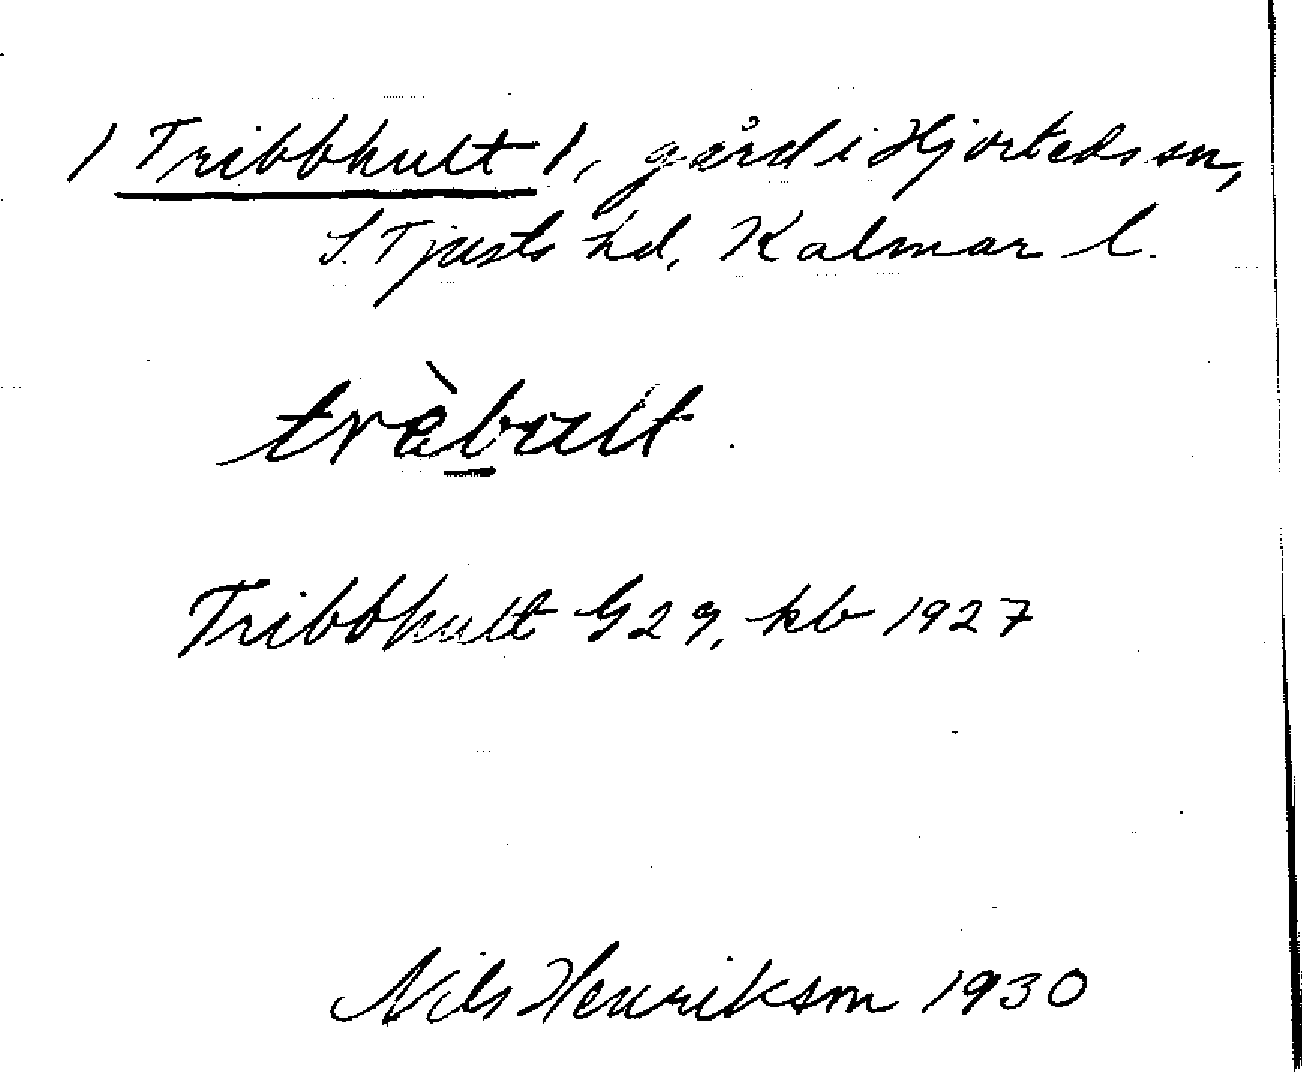 / Tribbhult /, gård i Hjorteds sn,
S. Tjusts hd, Kalmar l.
trèbult
Tribbhult G 29, kb 1927
Nils Henrikson 1930